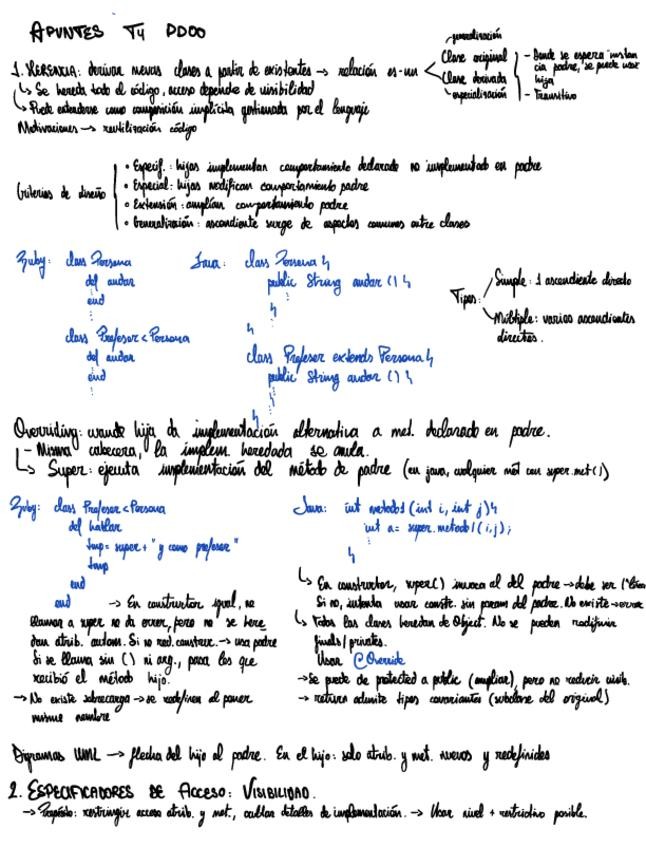 APUNTES T4 PDOO
generalización
1. HERENCIA: derivar nuevas clases a partir de existentes → relación es-un
Clase original
Clase derivada
especialización
- Donde se espera instan
cia padre, se puede usar
hija
- Transitivo
↳ Se hereda todo el código, acceso depende de visibilidad
↳ Puede entenderse como composición implícita gestionada por el lenguaje
Motivaciones → reutilización código
Criterios de diseño
• Especif.: hijas implementan comportamiento declarado no implementado en padre
• Especial: hijas modifican comportamiento padre
• Extensión: amplían comportamiento padre
• Generalización: ascendiente surge de aspectos comunes entre clases
Ruby: class Persona
def andar
end
class Profesor < Persona
def andar
end
Java: class Persona {
public String andar () {
}
}
class Profesor extends Persona {
public String andar () {
}
}
Tipos:
Simple: 1 ascendiente directo
Múltiple: varios ascendientes
directos.
Overriding: cuando hija da implementación alternativa a met. declarado en padre.
- Misma cabecera, la implem. heredada se anula.
↳ Super: ejecuta implementación del método de padre (en java, cualquier mét con super.met())
Ruby: class Profesor < Persona
def hablar
tmp = super + " y como profesor "
tmp
end
end
→ En constructor igual, no
llamar a super no da error, pero no se here
dan atrib. autom. Si no red. construc. → usa padre
Si se llama sin () ni arg., pasa los que
recibió el método hijo.
→ No existe sobrecarga → se redefinen al poner
mismo nombre
Java: int metodo1 (int i, int j) {
int a = super.metodo1 (i, j);
}
↳ En constructor, super() invoca al del padre → debe ser 1ª
Si no, intenta usar constr. sin param del padre. No existe → error
↳ Todas las clases heredan de Object. No se pueden redefinir
finals/privates.
Usar @Override
→ Se puede de protected a public (ampliar), pero no reducir visib.
→ return admite tipos covariantes (subclase del original)
Digramas UML → flecha del hijo al padre. En el hijo: solo atrib. y met. nuevos y redefinidos
2. ESPECIFICADORES DE ACCESO: VISIBILIDAD.
→ Propósito: restringir acceso atrib. y met., ocultar detalles de implementación. → Usar nivel + restrictivo posible.